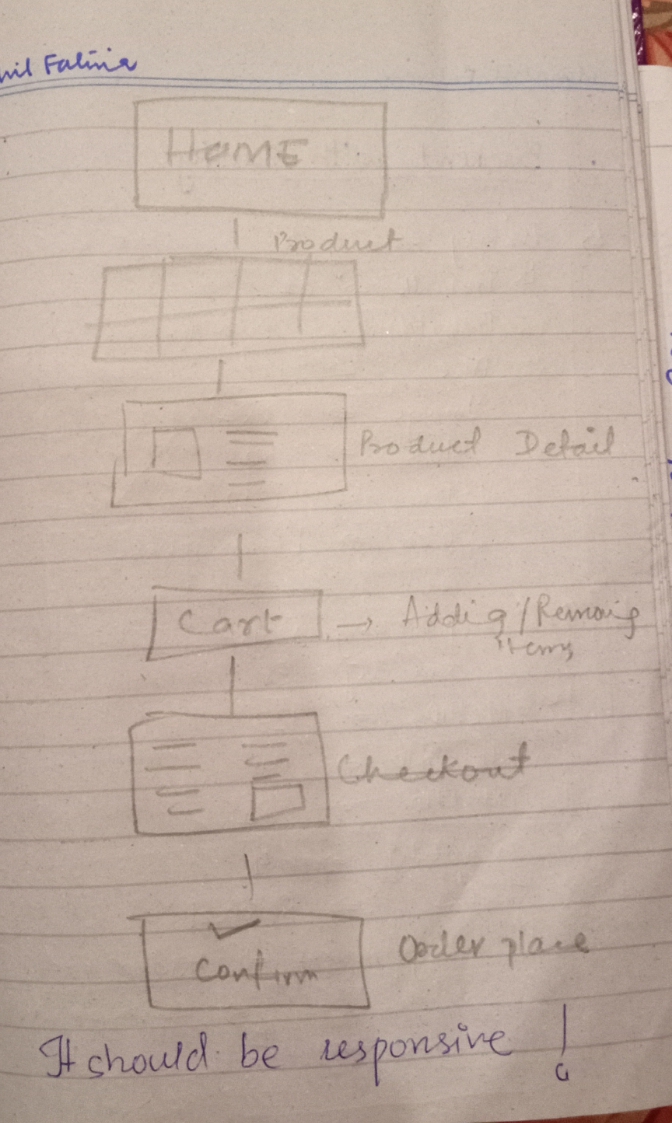 Falina
HOME
Product
Product Detail
Cart → Adding/Remoing
items
Checkout
✓
Confirm Order place
It should be responsive !